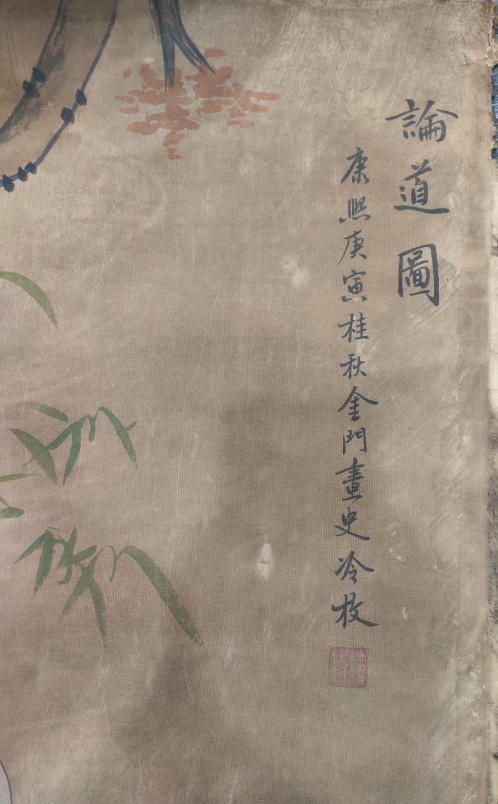 論道圖
康熙庚寅桂秋金門畫史冷枚